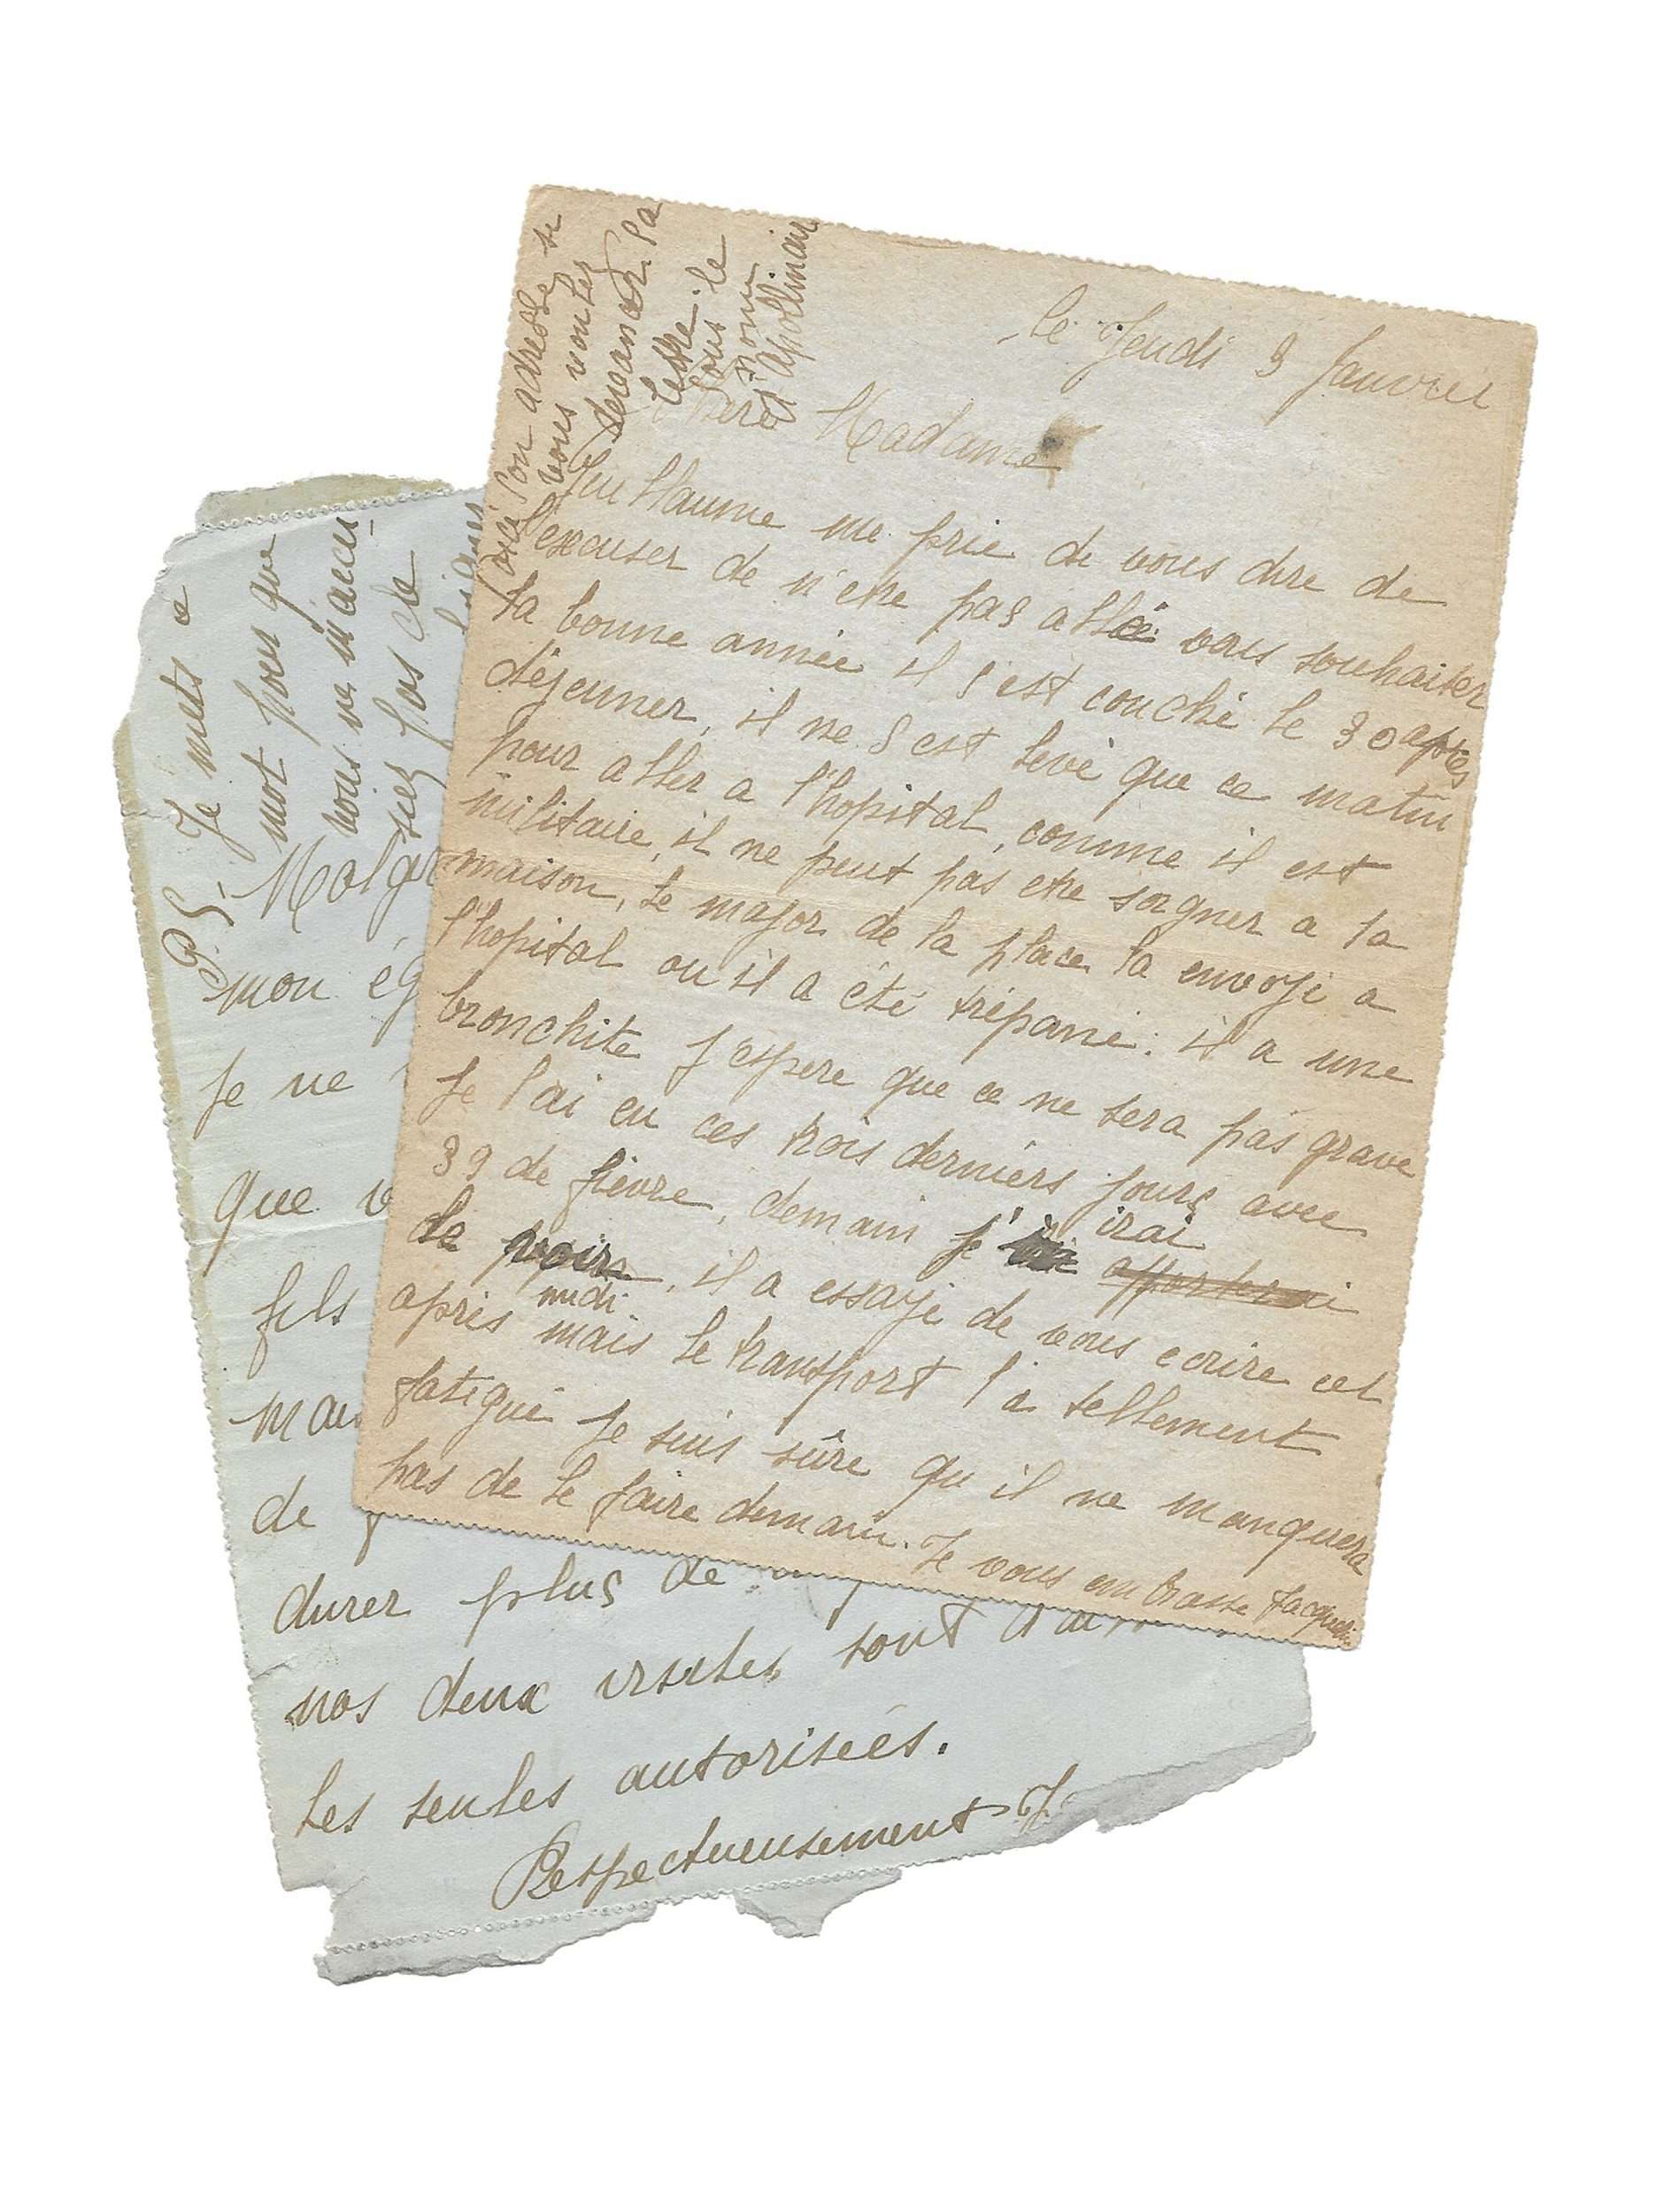 le Jeudi 3 Janvier
Chere Madame
Guillaume me prie de vous dire de
l'excuser de n'etre pas allé vous souhaiter
la bonne année il s'est couché le 30 après
déjeuner, il ne s'est levé que ce matin
pour aller a l'hopital, comme il est
militaire, il ne peut pas etre soigner a la
maison, le major de la place la envoyé a
l'hopital ou il a été trépané. il a une
bronchite j'espere que ce ne sera pas grave
je l'ai eu ces trois derniers jours avec
39 de fièvre, demain j' irai
le voir, il a essayé de vous ecrire cet
après midi mais le transport l'a tellement
fatigué je suis sûre qu'il ne manquera
pas de le faire demain. Je vous embrasse Jacqueline
Voici son adresse si
vous voulez
demander la
lettre.
sous le
nom
d'Apollinaire
P.S. Je mets a
mot pour que
vous ne m'accu-
siez pas de
Malgr
mon ég
je ne
que v
fils
mai
de
durer plus de
nos deux visites sont d'ai
les seules autorisées.
Respectueusement J